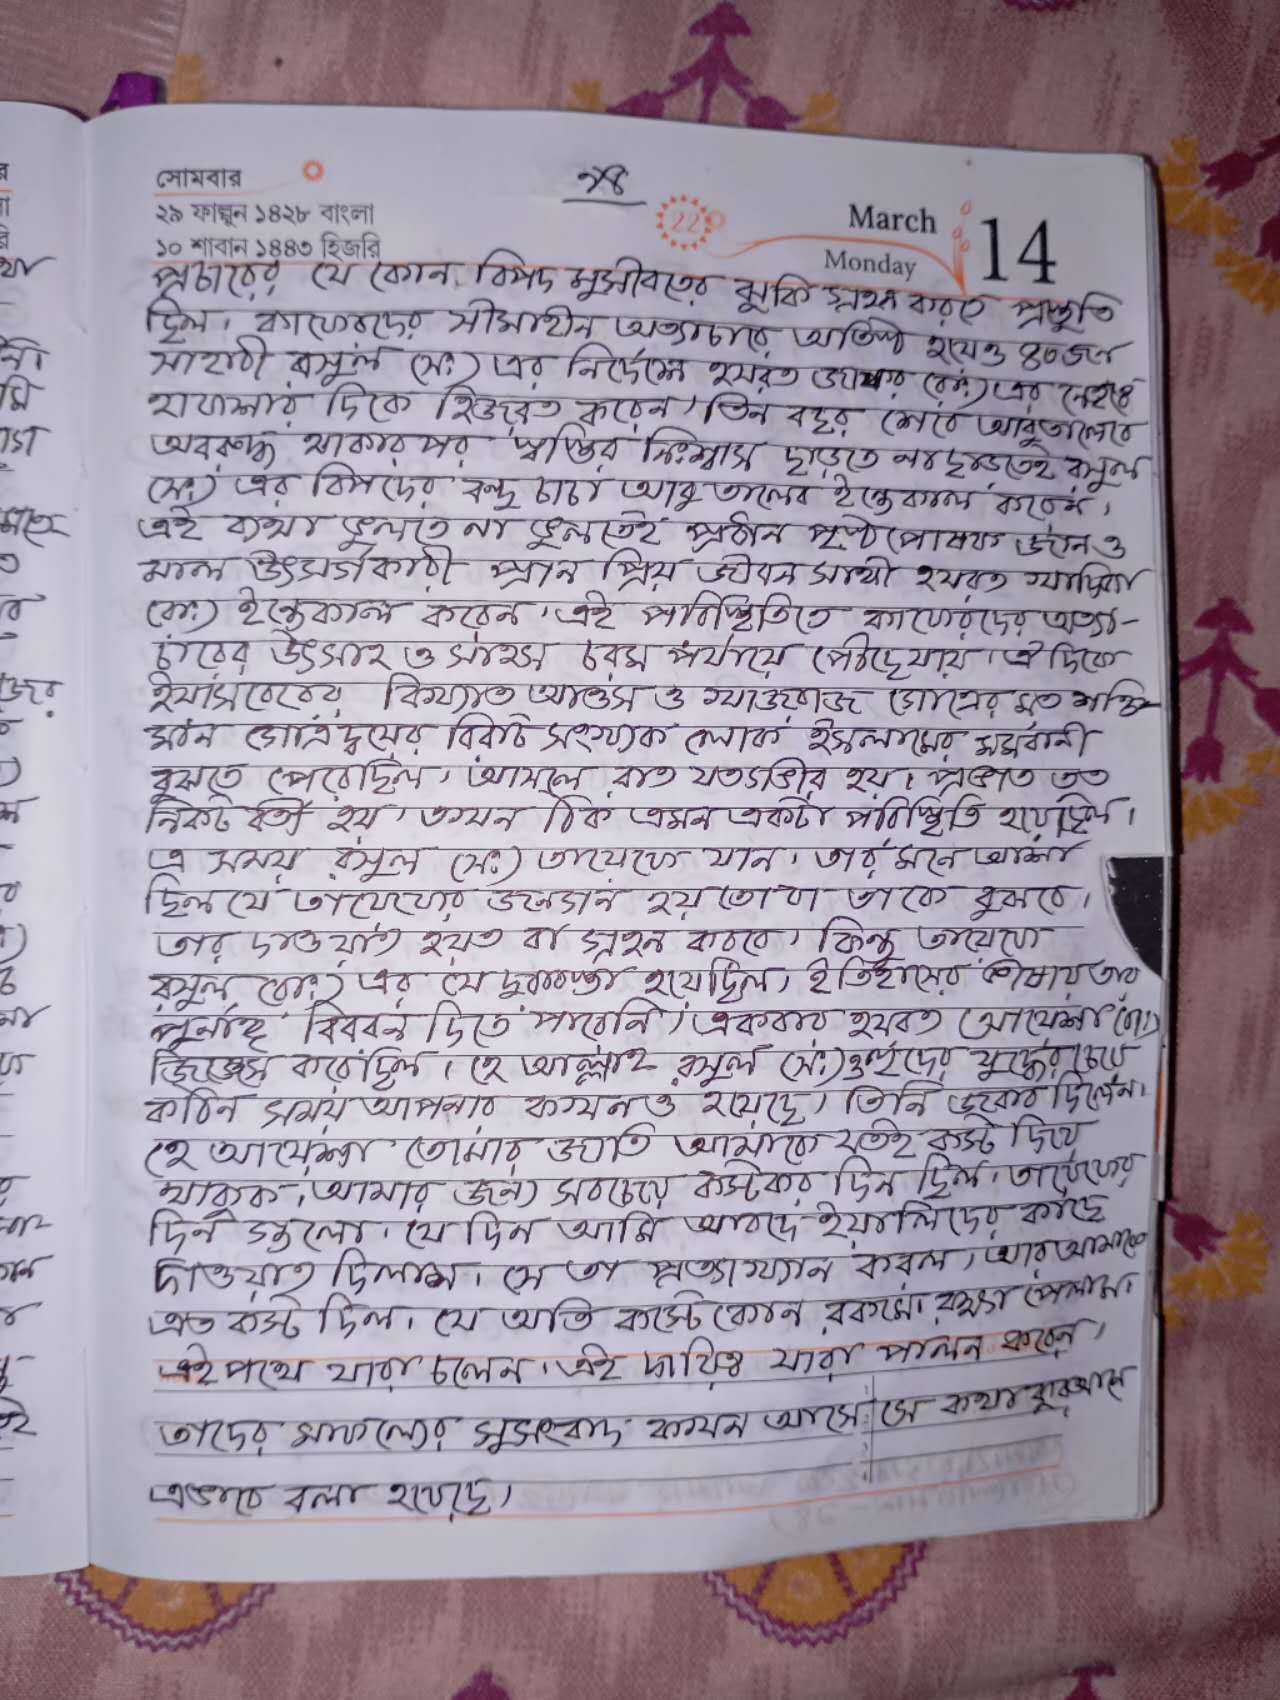 সোমবার
২৯ ফাল্গুন ১৪২৮ বাংলা
১০ শাবান ১৪৪৩ হিজরি
22
March
Monday
14
প্রচারের যে কোন বিপদ মুসীবতের ঝুকি গ্রহন করতে প্রস্তুতি
ছিল। কাফেরদের সীমাহীন অত্যাচারে অতিষ্ঠ হয়েও ৪০জন
সাহাবী রসুল (সঃ) এর নির্দেশে হযরত জাফর (রাঃ) এর নেতৃত্বে
হাবশার দিকে হিজরত করেন। তিন বছর শেবে আবুতালেবে
অবরুদ্ধ থাকার পর স্বস্তির নিঃশ্বাস ছাড়তে না ছাড়তেই রসুল
(সঃ) এর বিপদের বন্ধু চাচা আবু তালেব ইন্তেকাল করেন।
এই ব্যথা ভুলতে না ভুলতেই প্রধান পৃষ্ঠপোষক জান ও
মাল উৎসর্গকারী প্রান প্রিয় জীবন সাথী হযরত খাদিজা
(রাঃ) ইন্তেকাল করেন। এই পরিস্থিতিতে কাফেরদের অত্যা-
চারের উৎসাহ ও সাহস চরম পর্যায়ে পৌছে যায়। ঐ দিকে
ইয়াসরেবের বিখ্যাত আওস ও খাজরাজ গোত্রের মত শক্তি-
মান গোত্রদ্বয়ের বিরাট সংখ্যক লোক ইসলামের মর্মবানী
বুঝতে পেরেছিল। আসলে রাত যত গভীর হয়। প্রভাত তত
নিকট বর্তী হয়। তখন ঠিক এমন একটা পরিস্থিতি হয়েছিল।
এ সময় রসুল (সঃ) তায়েফে যান। তার মনে আশা
ছিল যে তায়েফের জনগন হয়তো বা তাকে বুঝবে।
তার দাওয়াত হয়ত বা গ্রহন করবে। কিন্তু তায়েফে
রসুল (সাঃ) এর যে দুরাবস্তা হয়েছিল। ইতিহাসের ভাষায় তার
পুর্নাঙ্গ বিবরন দিতে পারেনি। একবার হযরত আয়েশা (রাঃ)
জিজ্ঞেস করেছিল। হে আল্লাহর রসুল (সঃ) ওহুদের যুদ্ধের চেয়ে
কঠিন সময় আপনার কখনও হয়েছে। তিনি জবাব দিলেন।
হে আয়েশা তোমার জাতি আমাকে যতই কস্ট দিয়ে
থাকুক। আমার জন্য সবচেয়ে কস্টকর দিন ছিল। তায়েফের
দিন গুলো। যে দিন আমি আবদে ইয়ালিদের কাছে
দাওয়াত দিলাম। সে তা প্রত্যাখ্যান করল। আর আমাকে
এত কস্ট দিল। যে অতি কস্টে কোন রকমে রক্ষা পেলাম।
এই পথে যারা চলেন। এই দায়িত্ব যারা পালন করেন।
তাদের সাফল্যের সুসংবাদ কখন আসে সে কথা কুরআনে
এভাবে বলা হয়েছে।